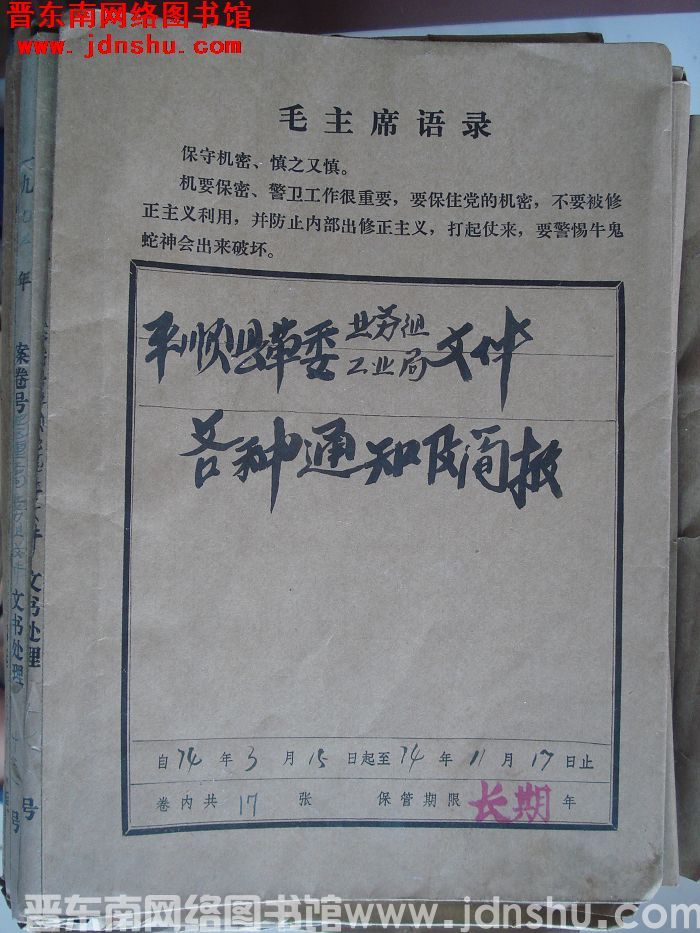 晋东南网络图书馆
www.jdnshu.com
毛主席语录
保守机密、慎之又慎。
机要保密、警卫工作很重要，要保住党的机密，不要被修
正主义利用，并防止内部出修正主义，打起仗来，要警惕牛鬼
蛇神会出来破坏。
平顺县革委业务组工业局文件
各种通知及简报
自74年3月15日起至74年11月17日止
卷内共17张 保管期限长期年
年
案卷号
文书处理
号
文书处理
号
晋东南网络图书馆www.jdnshu.com